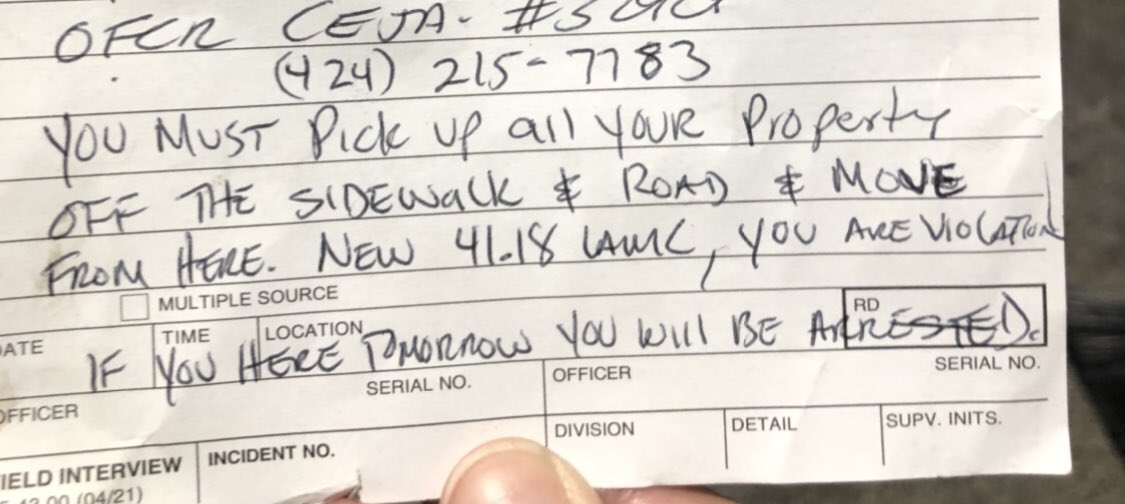 OFCR CEJA-
(424) 215-7783
YOU MUST Pick up all YOUR Property
OFF THE SIDEWalk & ROAD & MOVE
FROM HERE. NEW 41.18 LAMC, YOU ARE VIOLATION
MULTIPLE SOURCE
DATE TIME LOCATION RD
IF YOU HERE TOMORROW YOU WIll BE ARRESTED.
OFFICER SERIAL NO. OFFICER SERIAL NO.
DIVISION DETAIL SUPV. INITS.
FIELD INTERVIEW INCIDENT NO.
(04/21)